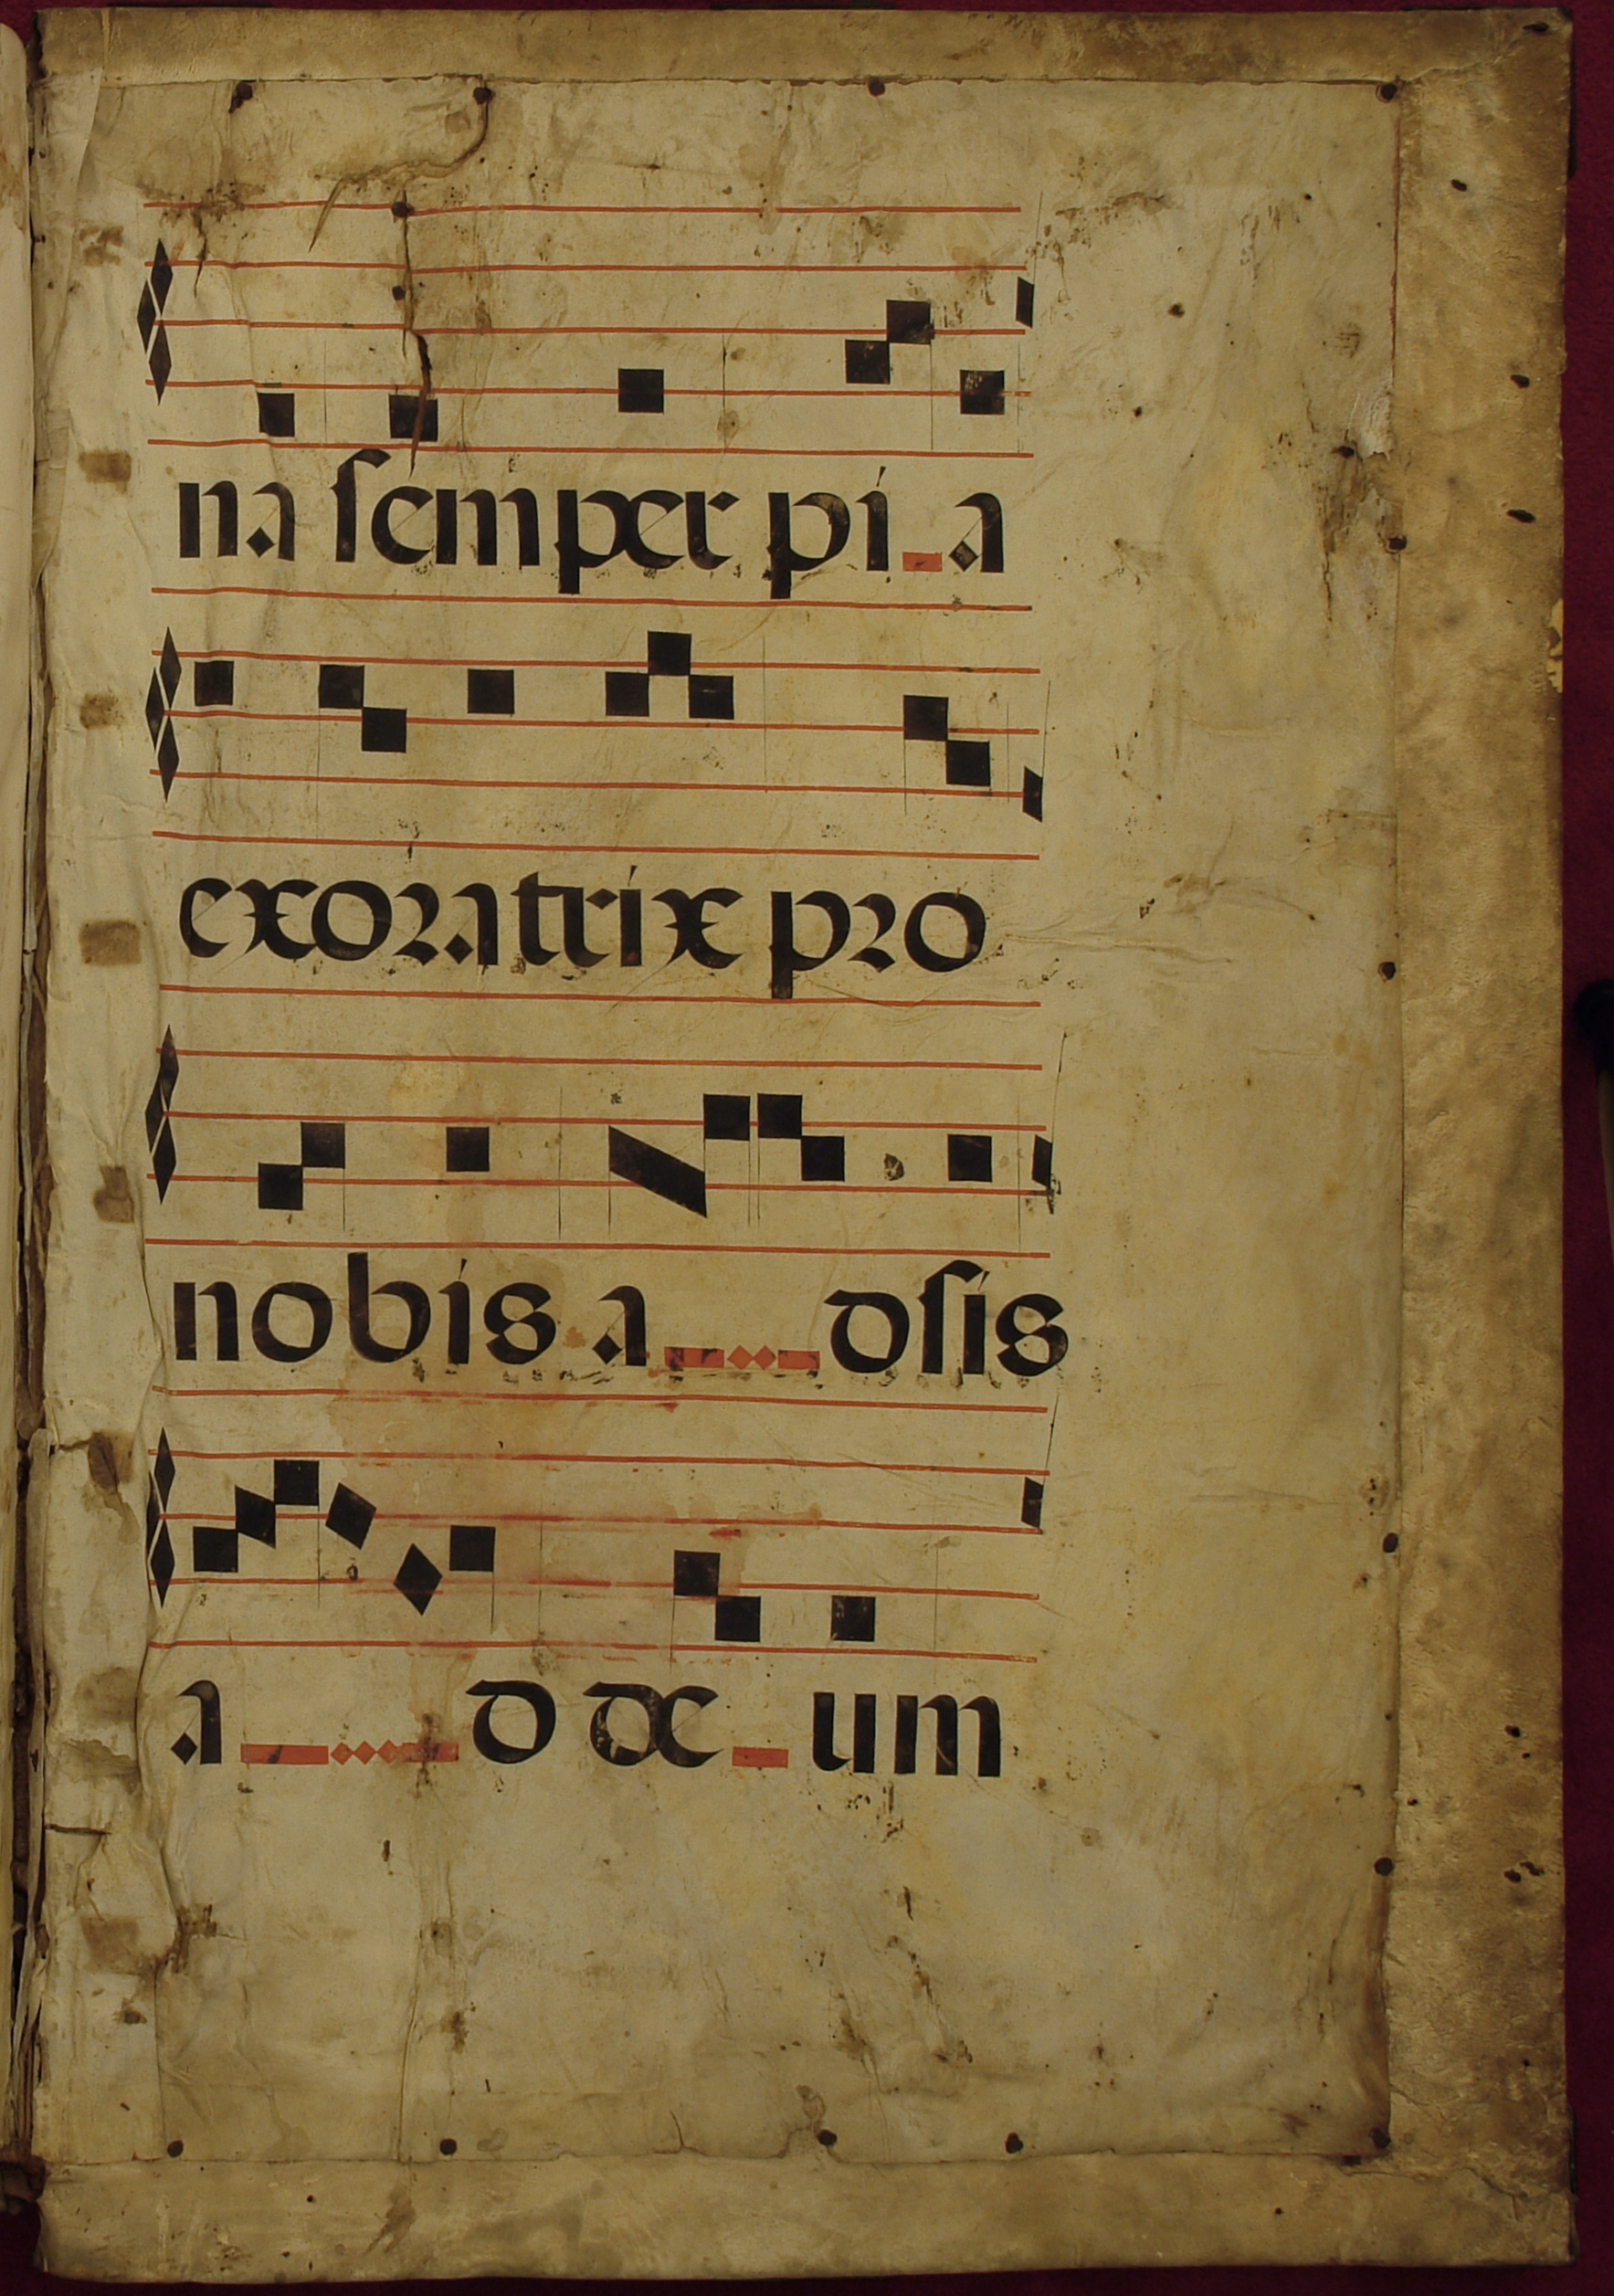 na semper pi_a
exoratrix pro
nobis a_dsis
a_d de_um